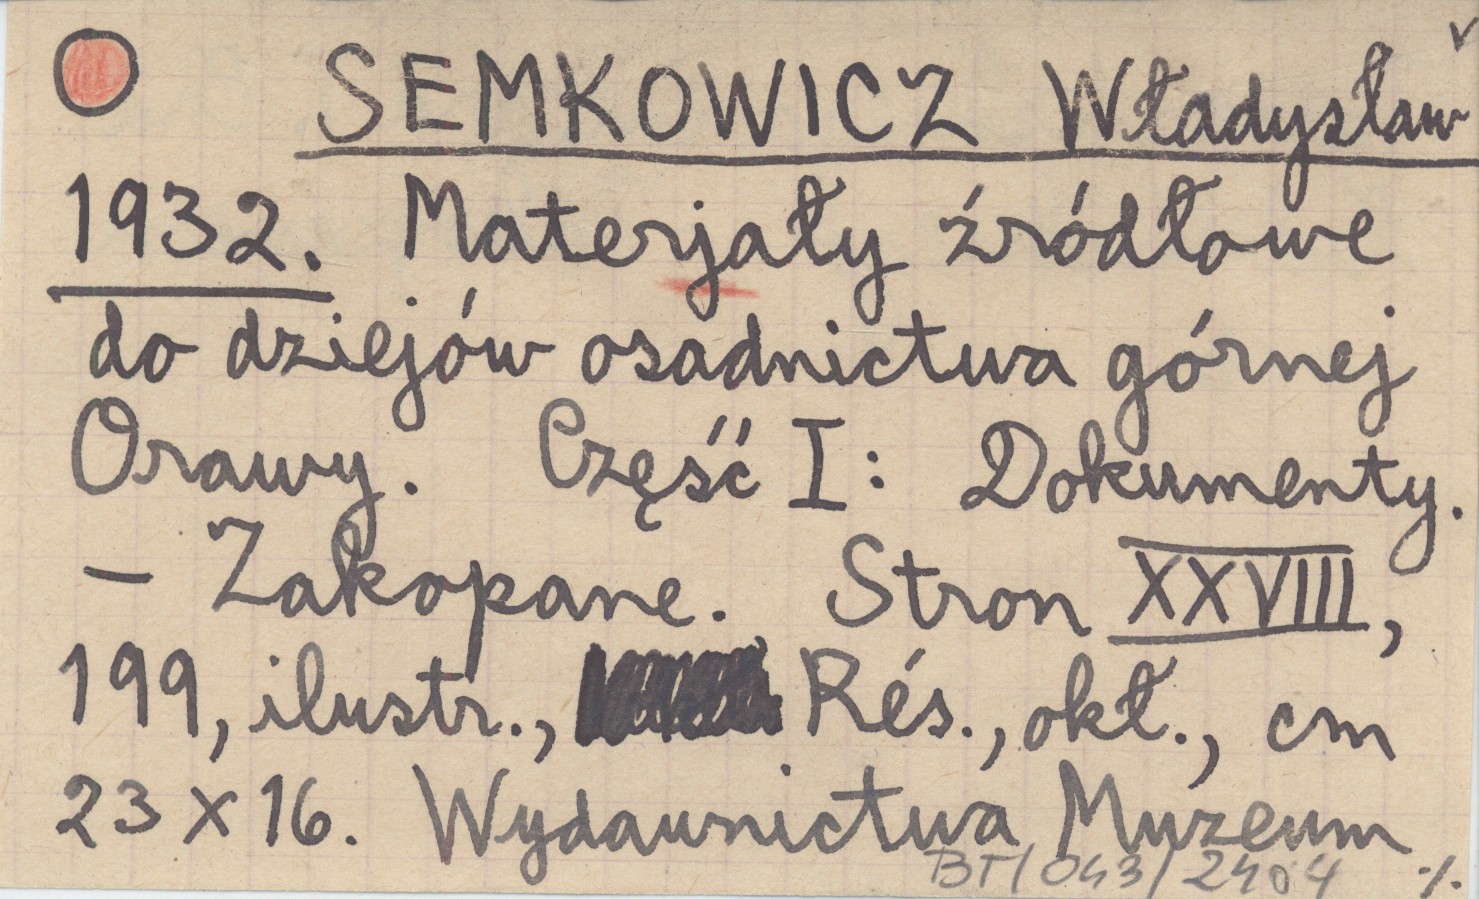 SEMKOWICZ Władysław
1932. Materjały źródłowe
do dziejów osadnictwa górnej
Orawy. Część I: Dokumenty.
— Zakopane. Stron XXVIII,
199, ilustr., Rés., okł., cm
23 x 16. Wydawnictwa Muzeum
BT/043/2404 ./.